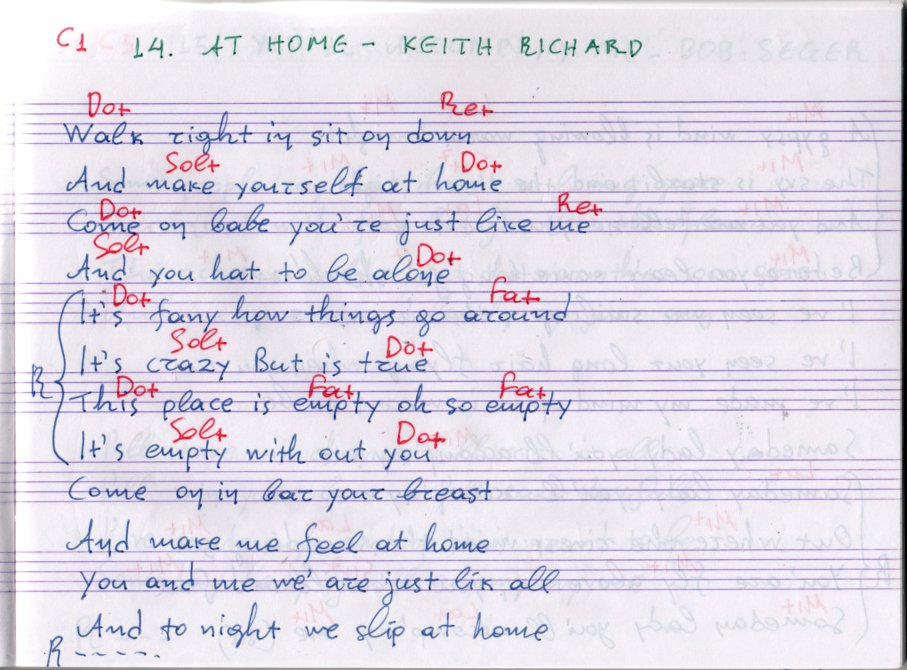 C1 14. AT HOME - KEITH RICHARD
Do+ Re+
Walk right in sit on down
Sol+ Do+
And make yourself at home
Do+ Re+
Come on babe you're just like me
Sol+ Do+
And you hat to be alone
Do+ Fa+
It's fany how things go around
Sol+ Do+
It's crazy But is true
R Do+ Fa+ Fa+
This place is empty oh so empty
Sol+ Do+
It's empty with out you
Come on in bar your breast
And make me feel at home
You and me we are just lik all
And to night we slip at home
R -----.